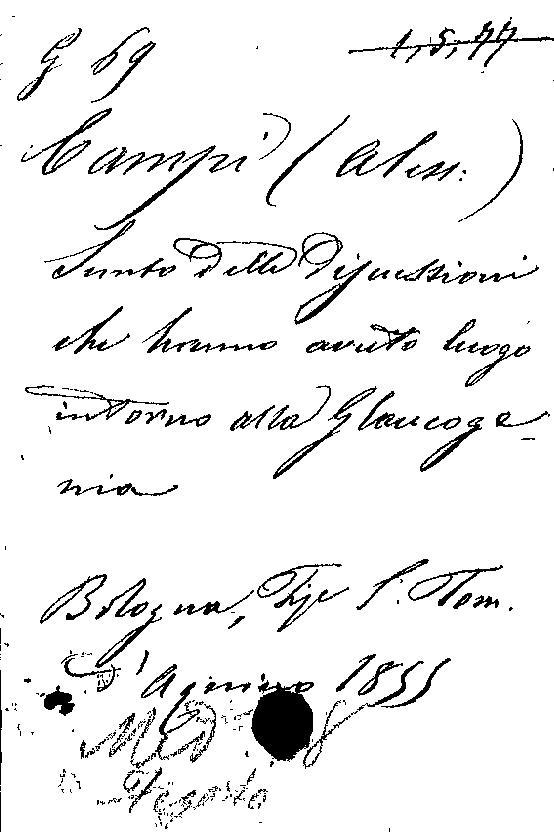 G 69 1,5,77
Campi (Aless:)
Sunto delle Discussioni
che hanno avuto luogo
intorno alla Glaucoge-
nia
Bologna, Tip S. Tom.
d'Aquino 1855
Med 8
Fegato